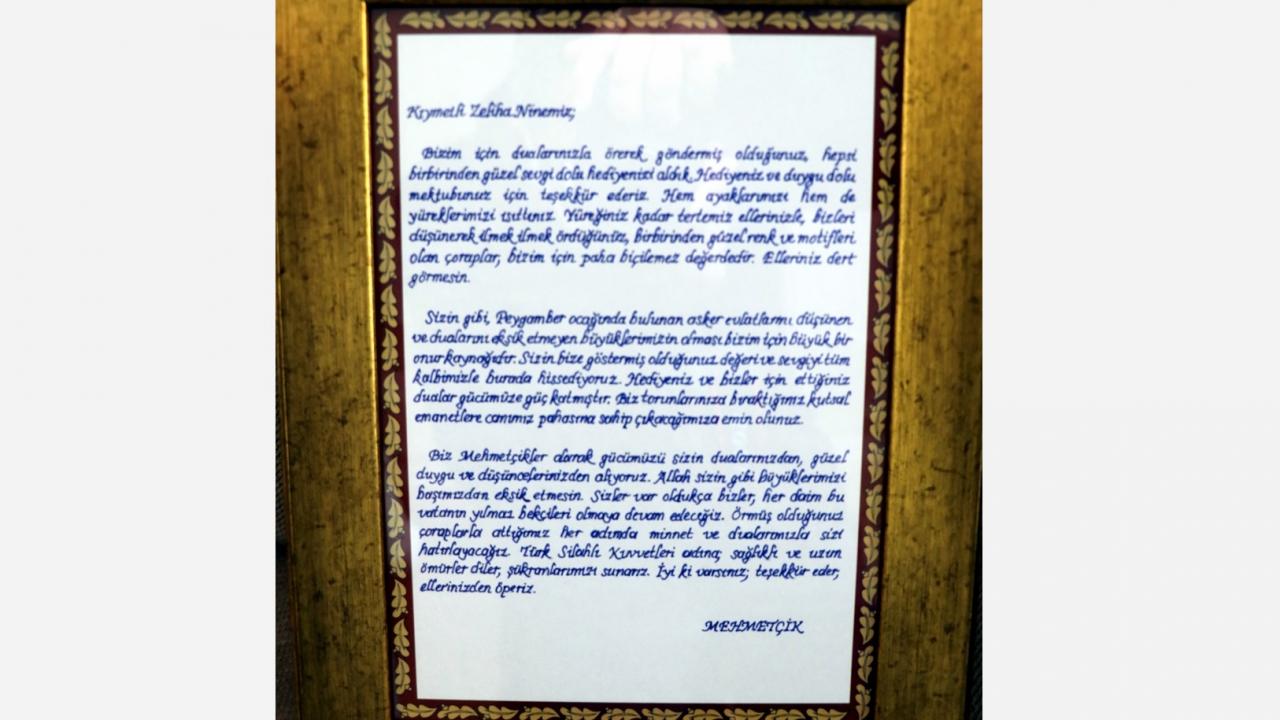 Kıymetli Zeliha Ninemiz;
Bizim için dualarınızla örerek göndermiş olduğunuz, hepsi
birbirinden güzel sevgi dolu hediyenizi aldık. Hediyeniz ve duygu dolu
mektubunuz için teşekkür ederiz. Hem ayaklarımızı hem de
yüreklerimizi ısıttınız. Yüreğiniz kadar tertemiz ellerinizle, bizleri
düşünerek ilmek ilmek ördüğünüz, birbirinden güzel renk ve motifleri
olan çoraplar, bizim için paha biçilemez değerdedir. Elleriniz dert
görmesin.
Sizin gibi, Peygamber ocağında bulunan asker evlatlarını düşünen
ve dualarını eksik etmeyen büyüklerimizin olması bizim için büyük bir
onur kaynağıdır. Sizin bize göstermiş olduğunuz değeri ve sevgiyi tüm
kalbimizle burada hissediyoruz. Hediyeniz ve bizler için ettiğiniz
dualar gücümüze güç katmıştır. Biz torunlarınıza bıraktığınız kutsal
emanetlere canımız pahasına sahip çıkacağımıza emin olunuz.
Biz Mehmetçikler olarak gücümüzü sizin dualarınızdan, güzel
duygu ve düşüncelerinizden alıyoruz. Allah sizin gibi büyüklerimizi
başımızdan eksik etmesin. Sizler var oldukça bizler, her daim bu
vatanın yılmaz bekçileri olmaya devam edeceğiz. Örmüş olduğunuz
çoraplarla attığımız her adımda minnet ve dualarımızla sizi
hatırlayacağız. Türk Silahlı Kuvvetleri adına; sağlıklı ve uzun
ömürler diler, şükranlarımızı sunarız. İyi ki varsınız; teşekkür eder,
ellerinizden öperiz.
MEHMETÇİK